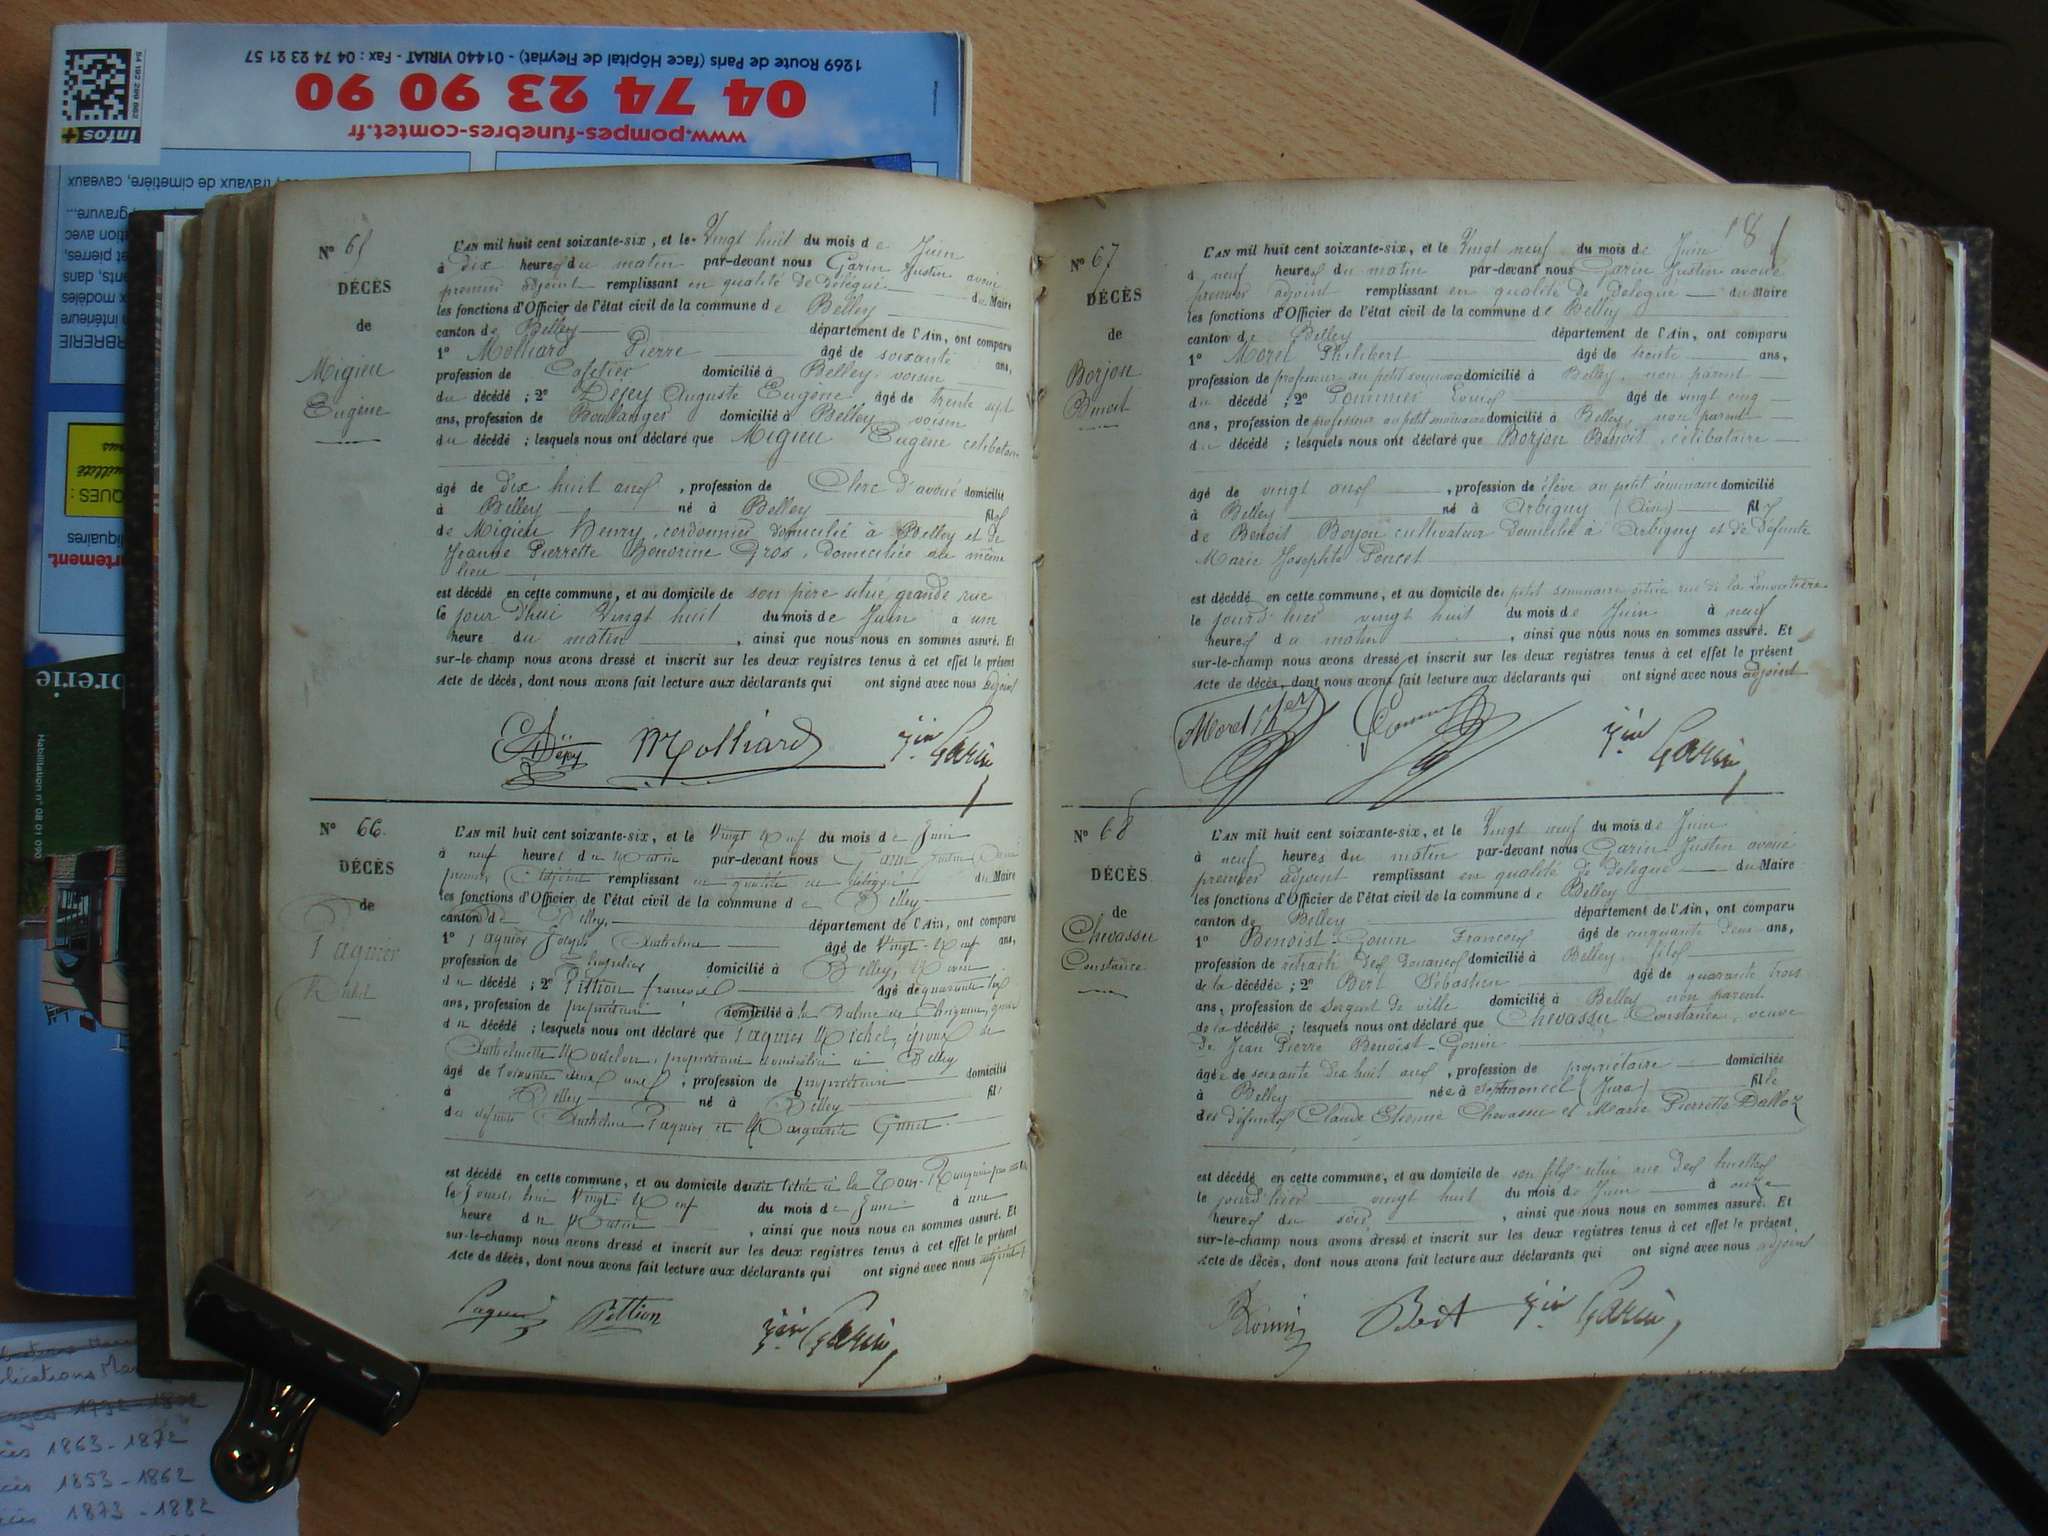 1269 Route de Paris (face Hôpital de Fleyriat) - 01440 VIRIAT - Fax : 04 74 23 21 57
04 74 23 90 90
www.pompes-funebres-comtet.fr
infos+
travaux de cimetière, caveaux
gravure,
Habilitation n° 08 01 090
N° 65
DÉCÈS
de
Migieu
Eugène
L'AN mil huit cent soixante-six, et le Vingt huit du mois de Juin
à dix heures du matin par-devant nous Garin Justin avoué
premier adjoint remplissant en qualité de Délégué du Maire
les fonctions d'Officier de l'état civil de la commune de Belley
canton de Belley département de l'Ain, ont comparu
1° Molliard Pierre âgé de soixante ans,
profession de Cafetier domicilié à Belley, voisin
du décédé ; 2° Dépey Auguste Eugène âgé de trente sept
ans, profession de Boulanger domicilié à Belley, voisin
du décédé ; lesquels nous ont déclaré que Migieu Eugène célibataire
âgé de dix huit ans, profession de Clerc d'avoué domicilié
à Belley né à Belley fils
de Migieu Henry, cordonnier domicilié à Belley et de
Jeanne Pierrette Honorine Gros, domiciliée au même
lieu
est décédé en cette commune, et au domicile de son père situé grande rue
le jour d'hui Vingt huit du mois de Juin à une
heure du matin, ainsi que nous nous en sommes assuré. Et
sur-le-champ nous avons dressé et inscrit sur les deux registres tenus à cet effet le présent
acte de décès, dont nous avons fait lecture aux déclarants qui ont signé avec nous adjoint
Dépey Molliard Jin Garin
N° 66
DÉCÈS
de
Paquier
Michel
L'AN mil huit cent soixante-six, et le Vingt Neuf du mois de Juin
à neuf heures du Matin par-devant nous Garin Justin
premier Adjoint remplissant en qualité de Délégué du Maire
les fonctions d'Officier de l'état civil de la commune de Belley
canton de Belley, département de l'Ain, ont comparu
1° Paquier Anthelme âgé de Vingt-Neuf ans,
profession de domicilié à Belley,
du décédé ; 2° Pittion François âgé de quarante six
ans, profession de propriétaire domicilié à la Balme
du décédé ; lesquels nous ont déclaré que Paquier Michel, époux de
Anthelmette propriétaire domicilié à Belley
âgé de soixante deux ans, profession de propriétaire domicilié
à Belley né à Belley fils
des défunts Anthelme Paquier et Marguerite
est décédé en cette commune, et au domicile de
le jourd'hui Vingt-Neuf du mois de Juin à une
heure du Matin, ainsi que nous nous en sommes assuré. Et
sur-le-champ nous avons dressé et inscrit sur les deux registres tenus à cet effet le présent
acte de décès, dont nous avons fait lecture aux déclarants qui ont signé avec nous adjoint
Paquier Pittion Jin Garin
N° 67
DÉCÈS
de
Borjon
Benoit
L'AN mil huit cent soixante-six, et le Vingt neuf du mois de Juin
à neuf heures du matin par-devant nous Garin Justin avoué
premier adjoint remplissant en qualité de Délégué du Maire
les fonctions d'Officier de l'état civil de la commune de Belley
canton de Belley département de l'Ain, ont comparu
1° Morel Philibert âgé de trente ans,
profession de professeur au petit séminaire domicilié à Belley, non parent
du décédé ; 2° Pommier Louis âgé de vingt cinq
ans, profession de professeur au petit séminaire domicilié à Belley, non parent
du décédé ; lesquels nous ont déclaré que Borjon Benoit, célibataire
âgé de vingt ans, profession de élève au petit séminaire domicilié
à Belley né à Arbigny (Ain) fils
de Benoit Borjon cultivateur domicilié à Arbigny et de défunte
Marie Josephte Poncet
est décédé en cette commune, et au domicile de petit séminaire située rue de la
le jourd'hier vingt huit du mois de Juin à neuf
heures du matin, ainsi que nous nous en sommes assuré. Et
sur-le-champ nous avons dressé et inscrit sur les deux registres tenus à cet effet le présent
acte de décès, dont nous avons fait lecture aux déclarants qui ont signé avec nous adjoint
Morel Jin Garin
N° 68
DÉCÈS
de
Chevassu
Constance
L'AN mil huit cent soixante-six, et le Vingt neuf du mois de Juin
à neuf heures du matin par-devant nous Garin Justin avoué
premier adjoint remplissant en qualité de Délégué du Maire
les fonctions d'Officier de l'état civil de la commune de Belley
canton de Belley département de l'Ain, ont comparu
1° Benoist-Gonin François âgé de cinquante deux ans,
profession de retraité des douanes domicilié à Belley, fils
de la décédée ; 2° Bert Sébastien âgé de quarante trois
ans, profession de sergent de ville domicilié à Belley non parent
de la décédée ; lesquels nous ont déclaré que Chevassu Constance, veuve
de Jean Pierre Benoist-Gonin
âgée de soixante dix huit ans, profession de propriétaire domiciliée
à Belley née à Septmoncel (Jura) fille
des défunts Claude Etienne Chevassu et Marie Pierrette Dalloz
est décédé en cette commune, et au domicile de son fils situé rue des
le jourd'hier vingt huit du mois de Juin à onze
heures du soir, ainsi que nous nous en sommes assuré. Et
sur-le-champ nous avons dressé et inscrit sur les deux registres tenus à cet effet le présent
acte de décès, dont nous avons fait lecture aux déclarants qui ont signé avec nous adjoint
Bert Jin Garin
1863-1872
1853-1862
1873-1882